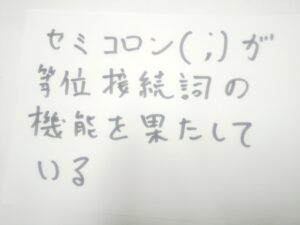 セミコロン(;)が
等位接続詞の
機能を果たして
いる